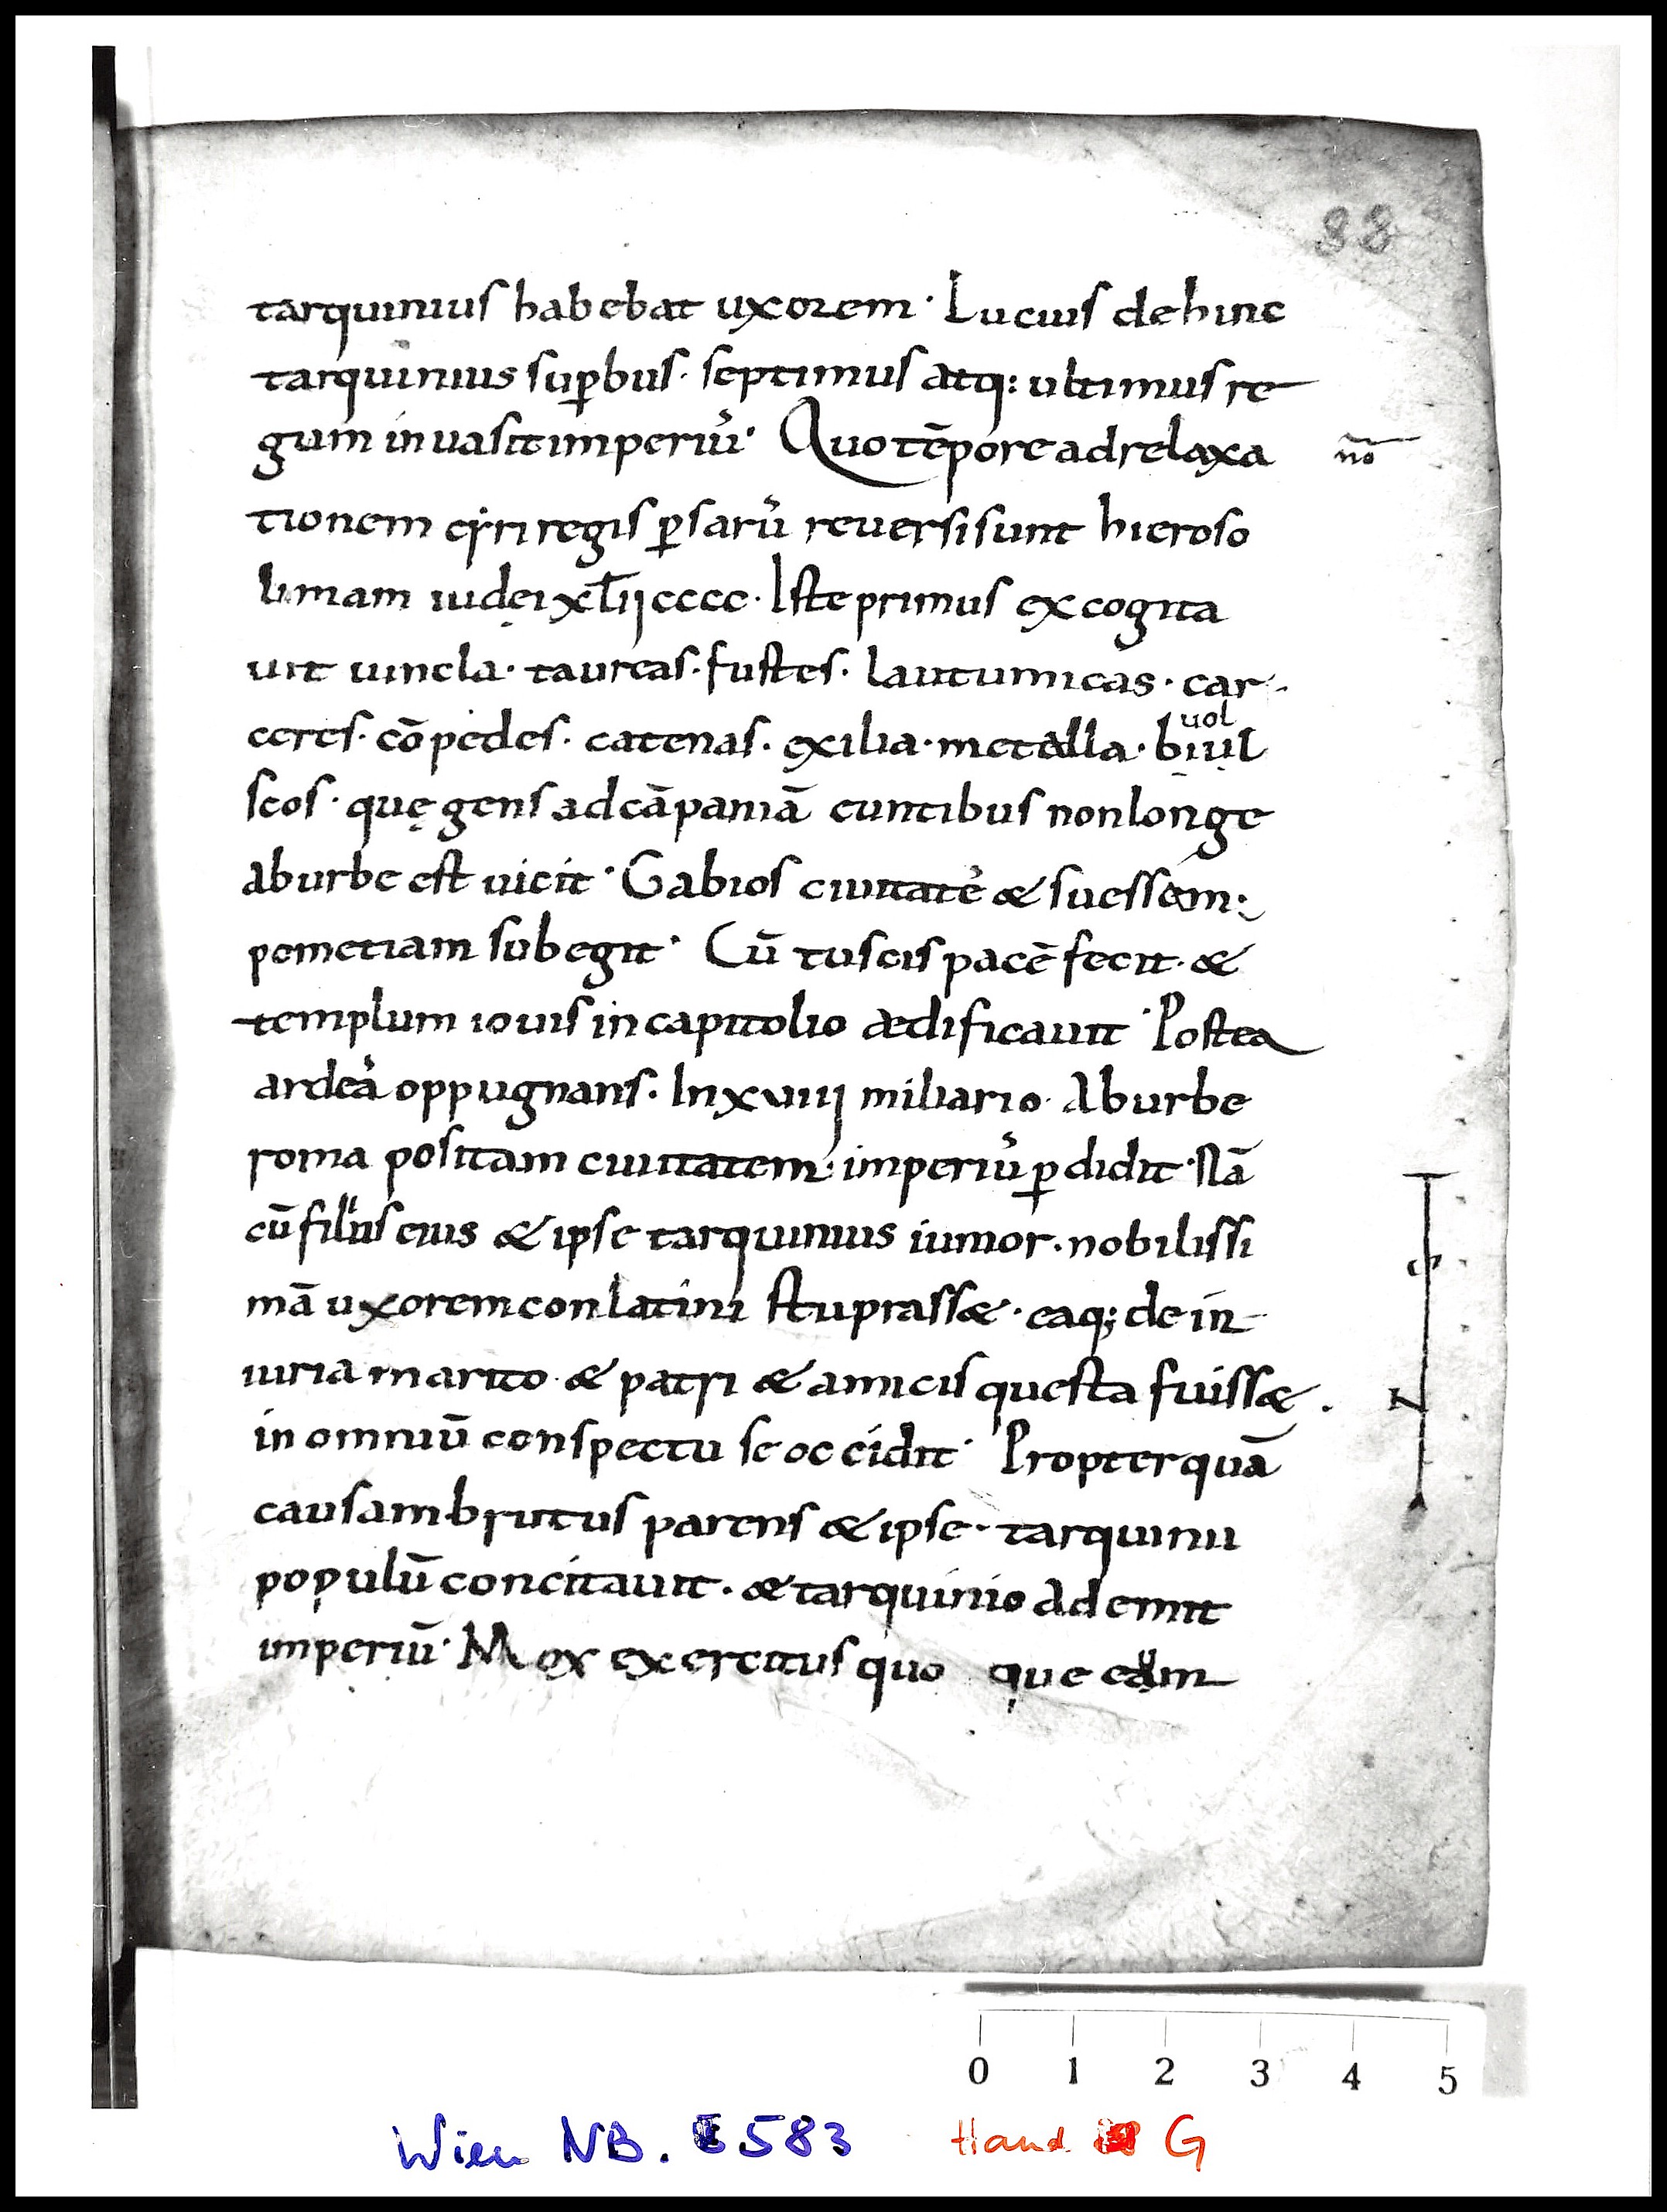 88
tarquinius habebat uxorem· Lucius dehinc
tarquinius sup̱bus· septimus atq: ultimus re
gum inuasit imperiū· Quo tēpore ad relaxa nō
tionem cẏri regis p̱sarū reuersi sunt hieroso
limam iudei xl̄ijcccc· Iste primus excogita
uit uincla· taureas· fustes· lautumicas· car
ceres· cōpedes· catenas· exilia· metalla· b uol iul
scos· quę gens ad cāpaniā euntibus non longe
ab urbe est uicit· Gabios ciuitatē & suessem:
pometiam subegit· Cū tuscis pacē fecit· &
templum iouis in capitolio ædificauit· Postea
ardeā oppugnans· In xuiiij miliario· ab urbe
roma positam ciuitatem: imperiū p̱didit· Nā
cū filius eius & ipse tarquinius iunior· nobilissi
mā uxorem conlatini stuprass&· eaq; de in
iuria marito· & patri & amicis questa fuiss&.
in omniū conspectu se occidit· Propter quā
causam brutus parens & ipse· tarquinii
populū concitauit· & tarquinio ademit
imperiū· Mox exercitus quo que eam
0 1 2 3 4 5
Wien NB. 583 Hand G